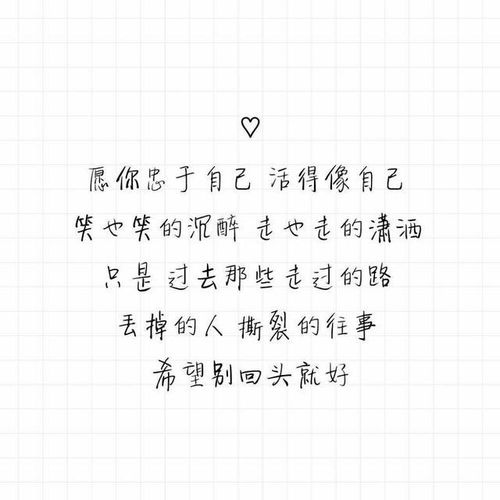 愿你忠于自己 活得像自己
笑也笑的沉醉 走也走的潇洒
只是 过去那些走过的路
丢掉的人 撕裂的往事
希望别回头就好